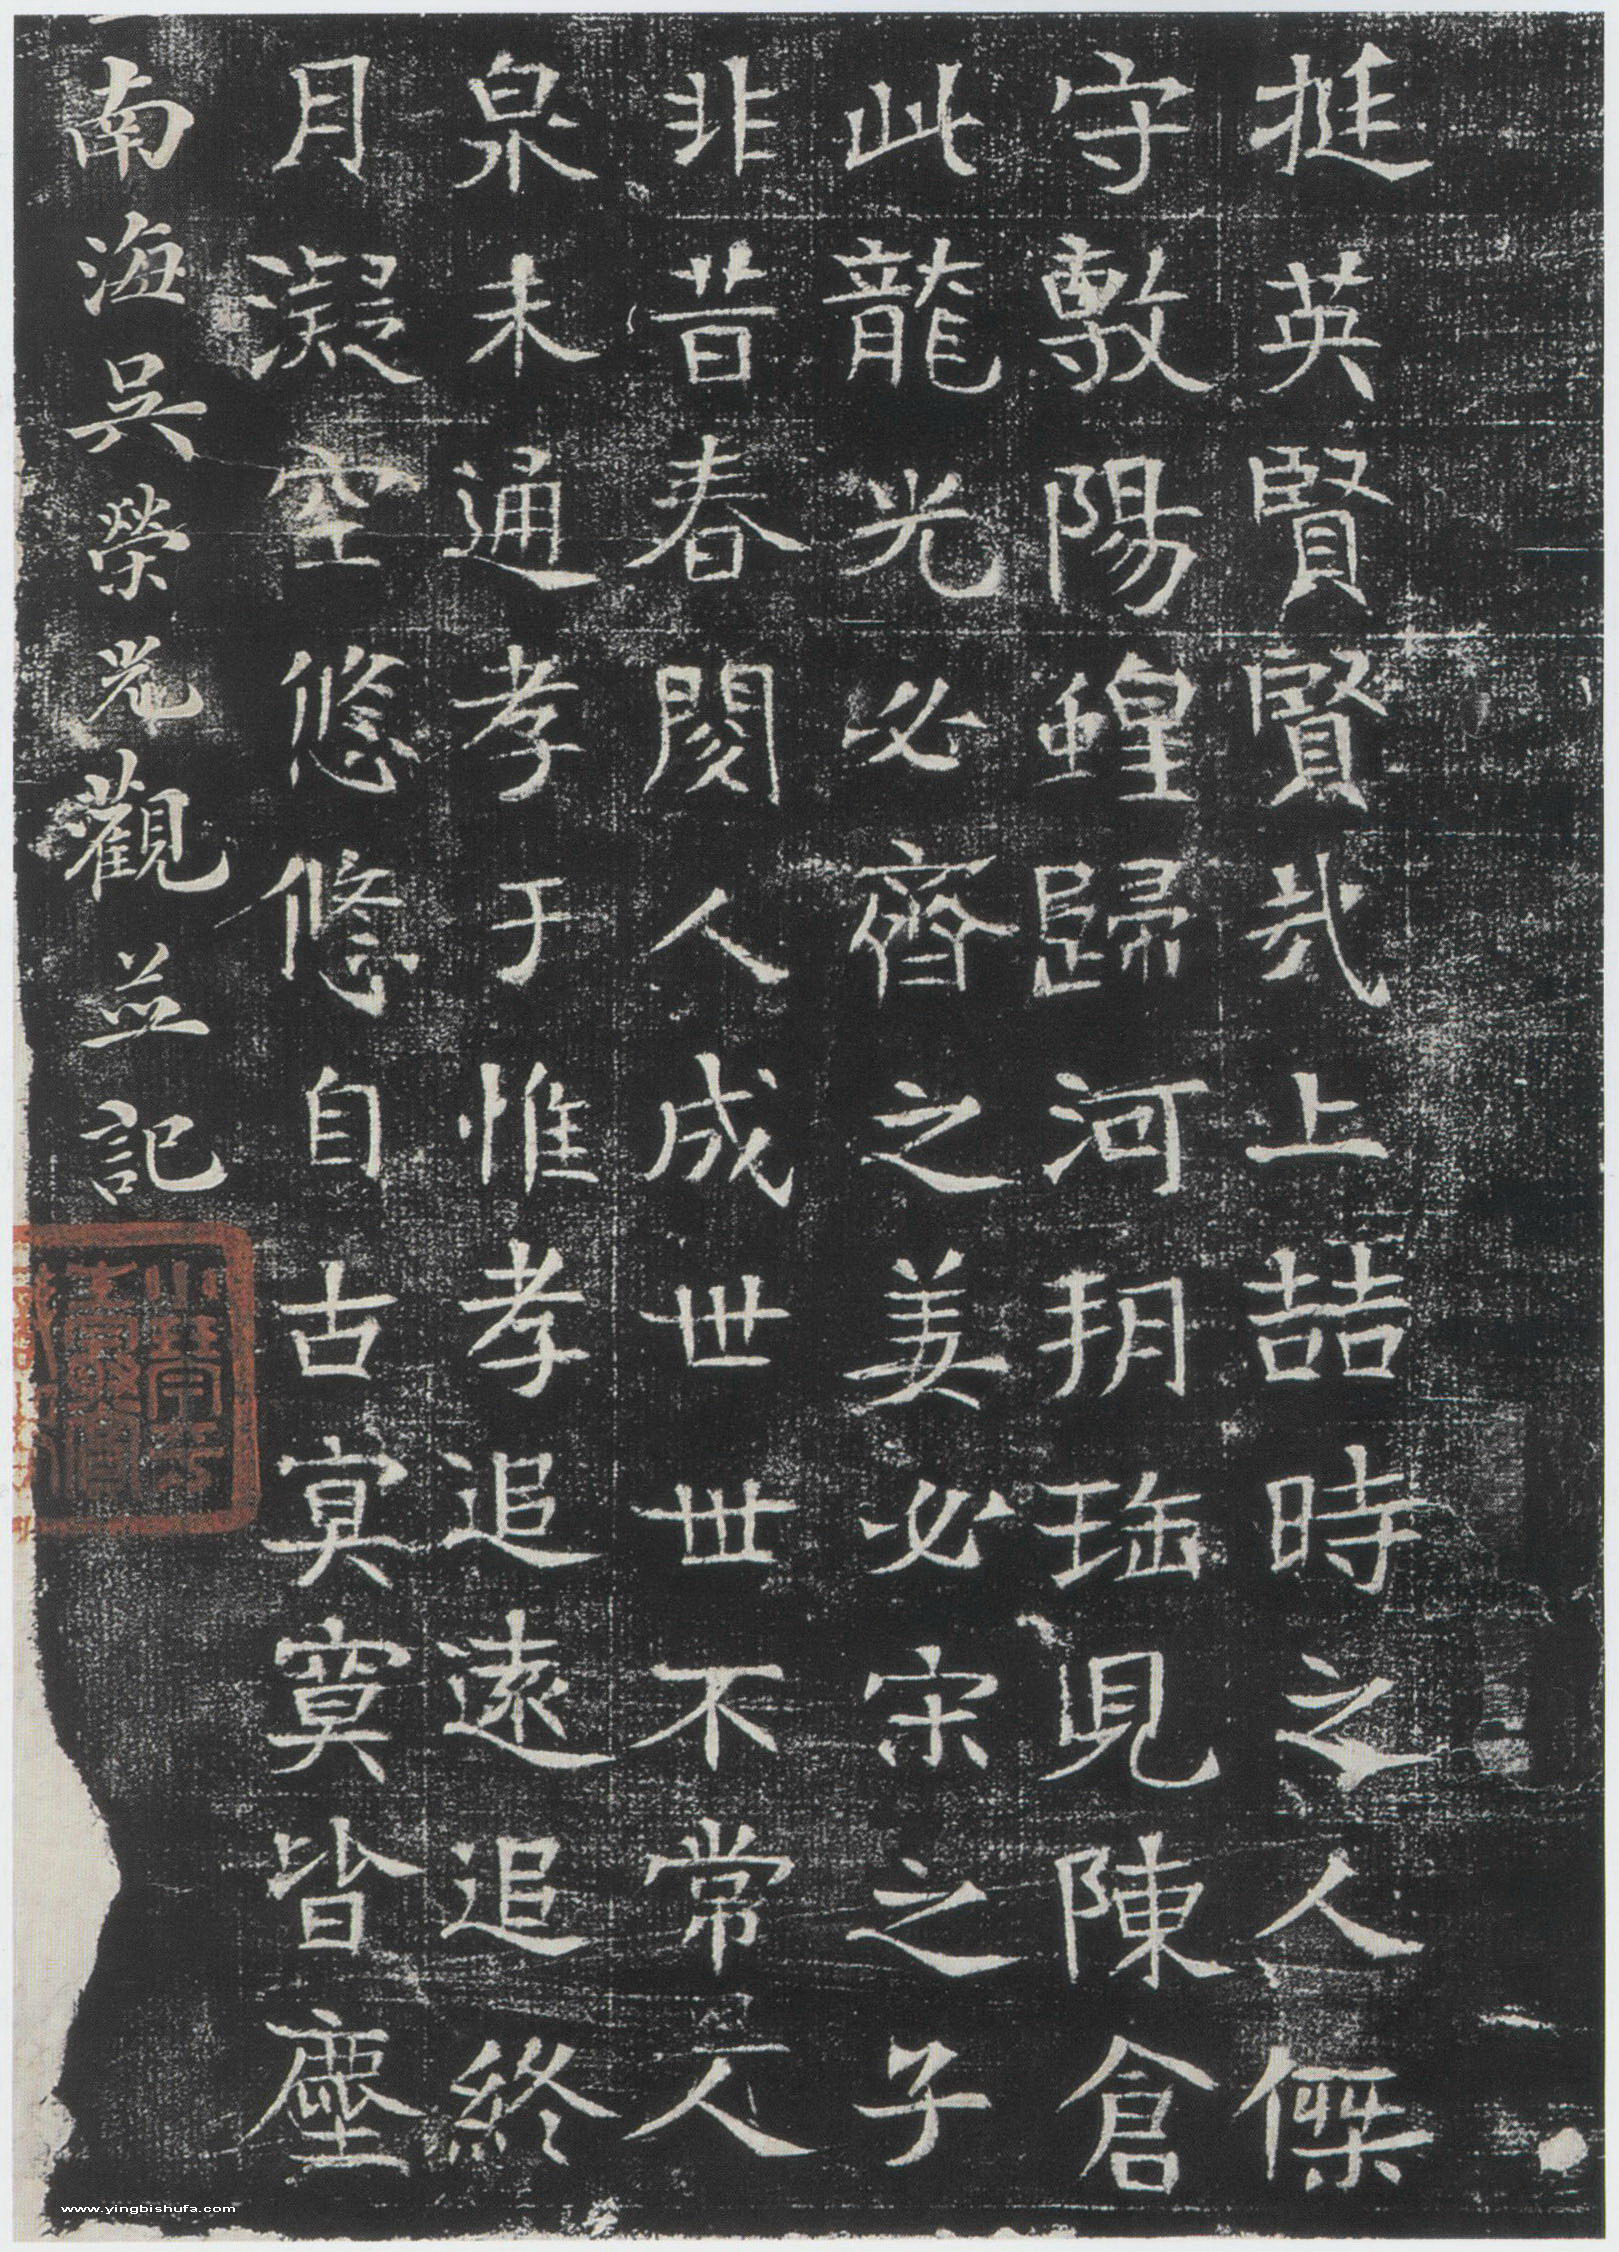 挺英賢賢弐上喆時之人傑
守敷陽鍠歸河玥珤見陳倉
此龍光必齊之美必宋之子
非昔春閿人成世世不常人
泉未通孝于惟孝追遠追終
月凝空悠悠自古寘寘皆塵
南海吳榮光觀並記
www.yingbishufa.com